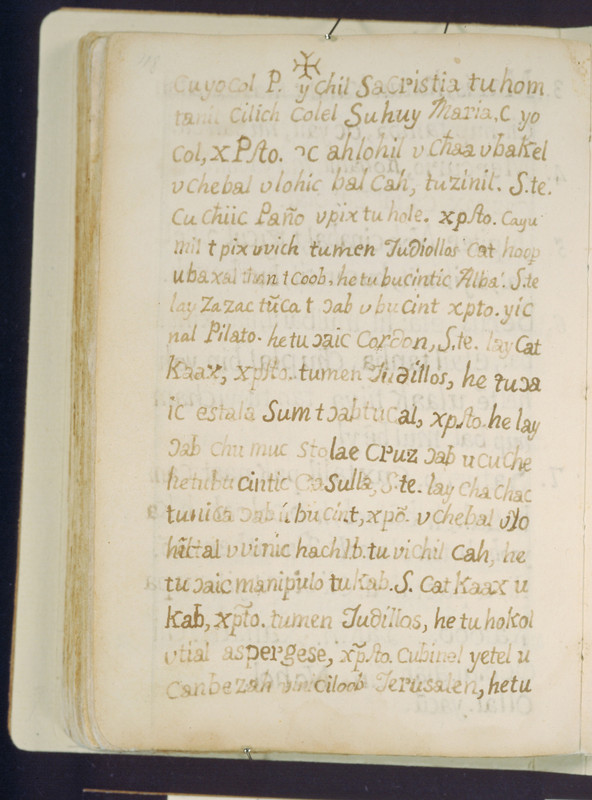 ✠
Cuyocol P. ychil Sacristia tuhom
tanil Cilich Colel Suhuy Maria, c yo
Col, xPſto. ɔc ahlohil v Chaa v bakel
v chebal v lohic bal Cah, tu zinil. S.te.
Cu Chiic Paño v pix tu hole. xpſto. Cayu
mil t pix v vich tumen Judiollos Cat hoop
u baxal t coob, he tu bucintic Alba. S.te
lay Zazac tũcat ɔab v bucint xpto. yic
nal Pilato. he tu ɔaic Cordon, S.te. lay Cat
Kaax, xpſto. tumen Judillos, he tu ɔa
ic estala Sum t ɔab tu cal, xpſto. he lay
ɔab chu muc Stolae Cruz ɔab u cuche
he tu bucintic Casulla, S.te. lay Cha chac
tunica ɔab u bucint, xpõ. v chebal v lo
v vinic hach lb. tu vichil Cah, he
tu ɔaic manipulo tu kab. S. Cat Kaax u
Kab, xpto. tumen Judillos, he tu hokol
v tial aspergese, xpſto. Cubinel yetel u
Canbezah Jerusalen, he tu